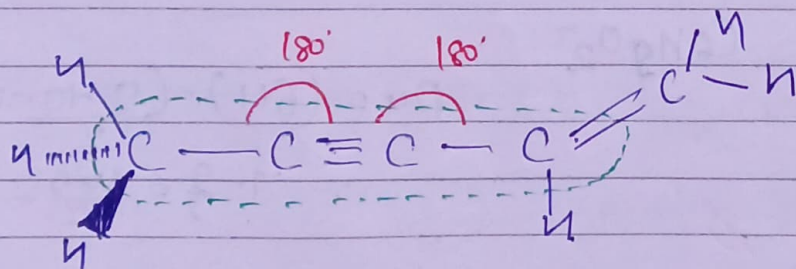 180° 180° H
H C — H
H C — C ≡ C — C =
H H